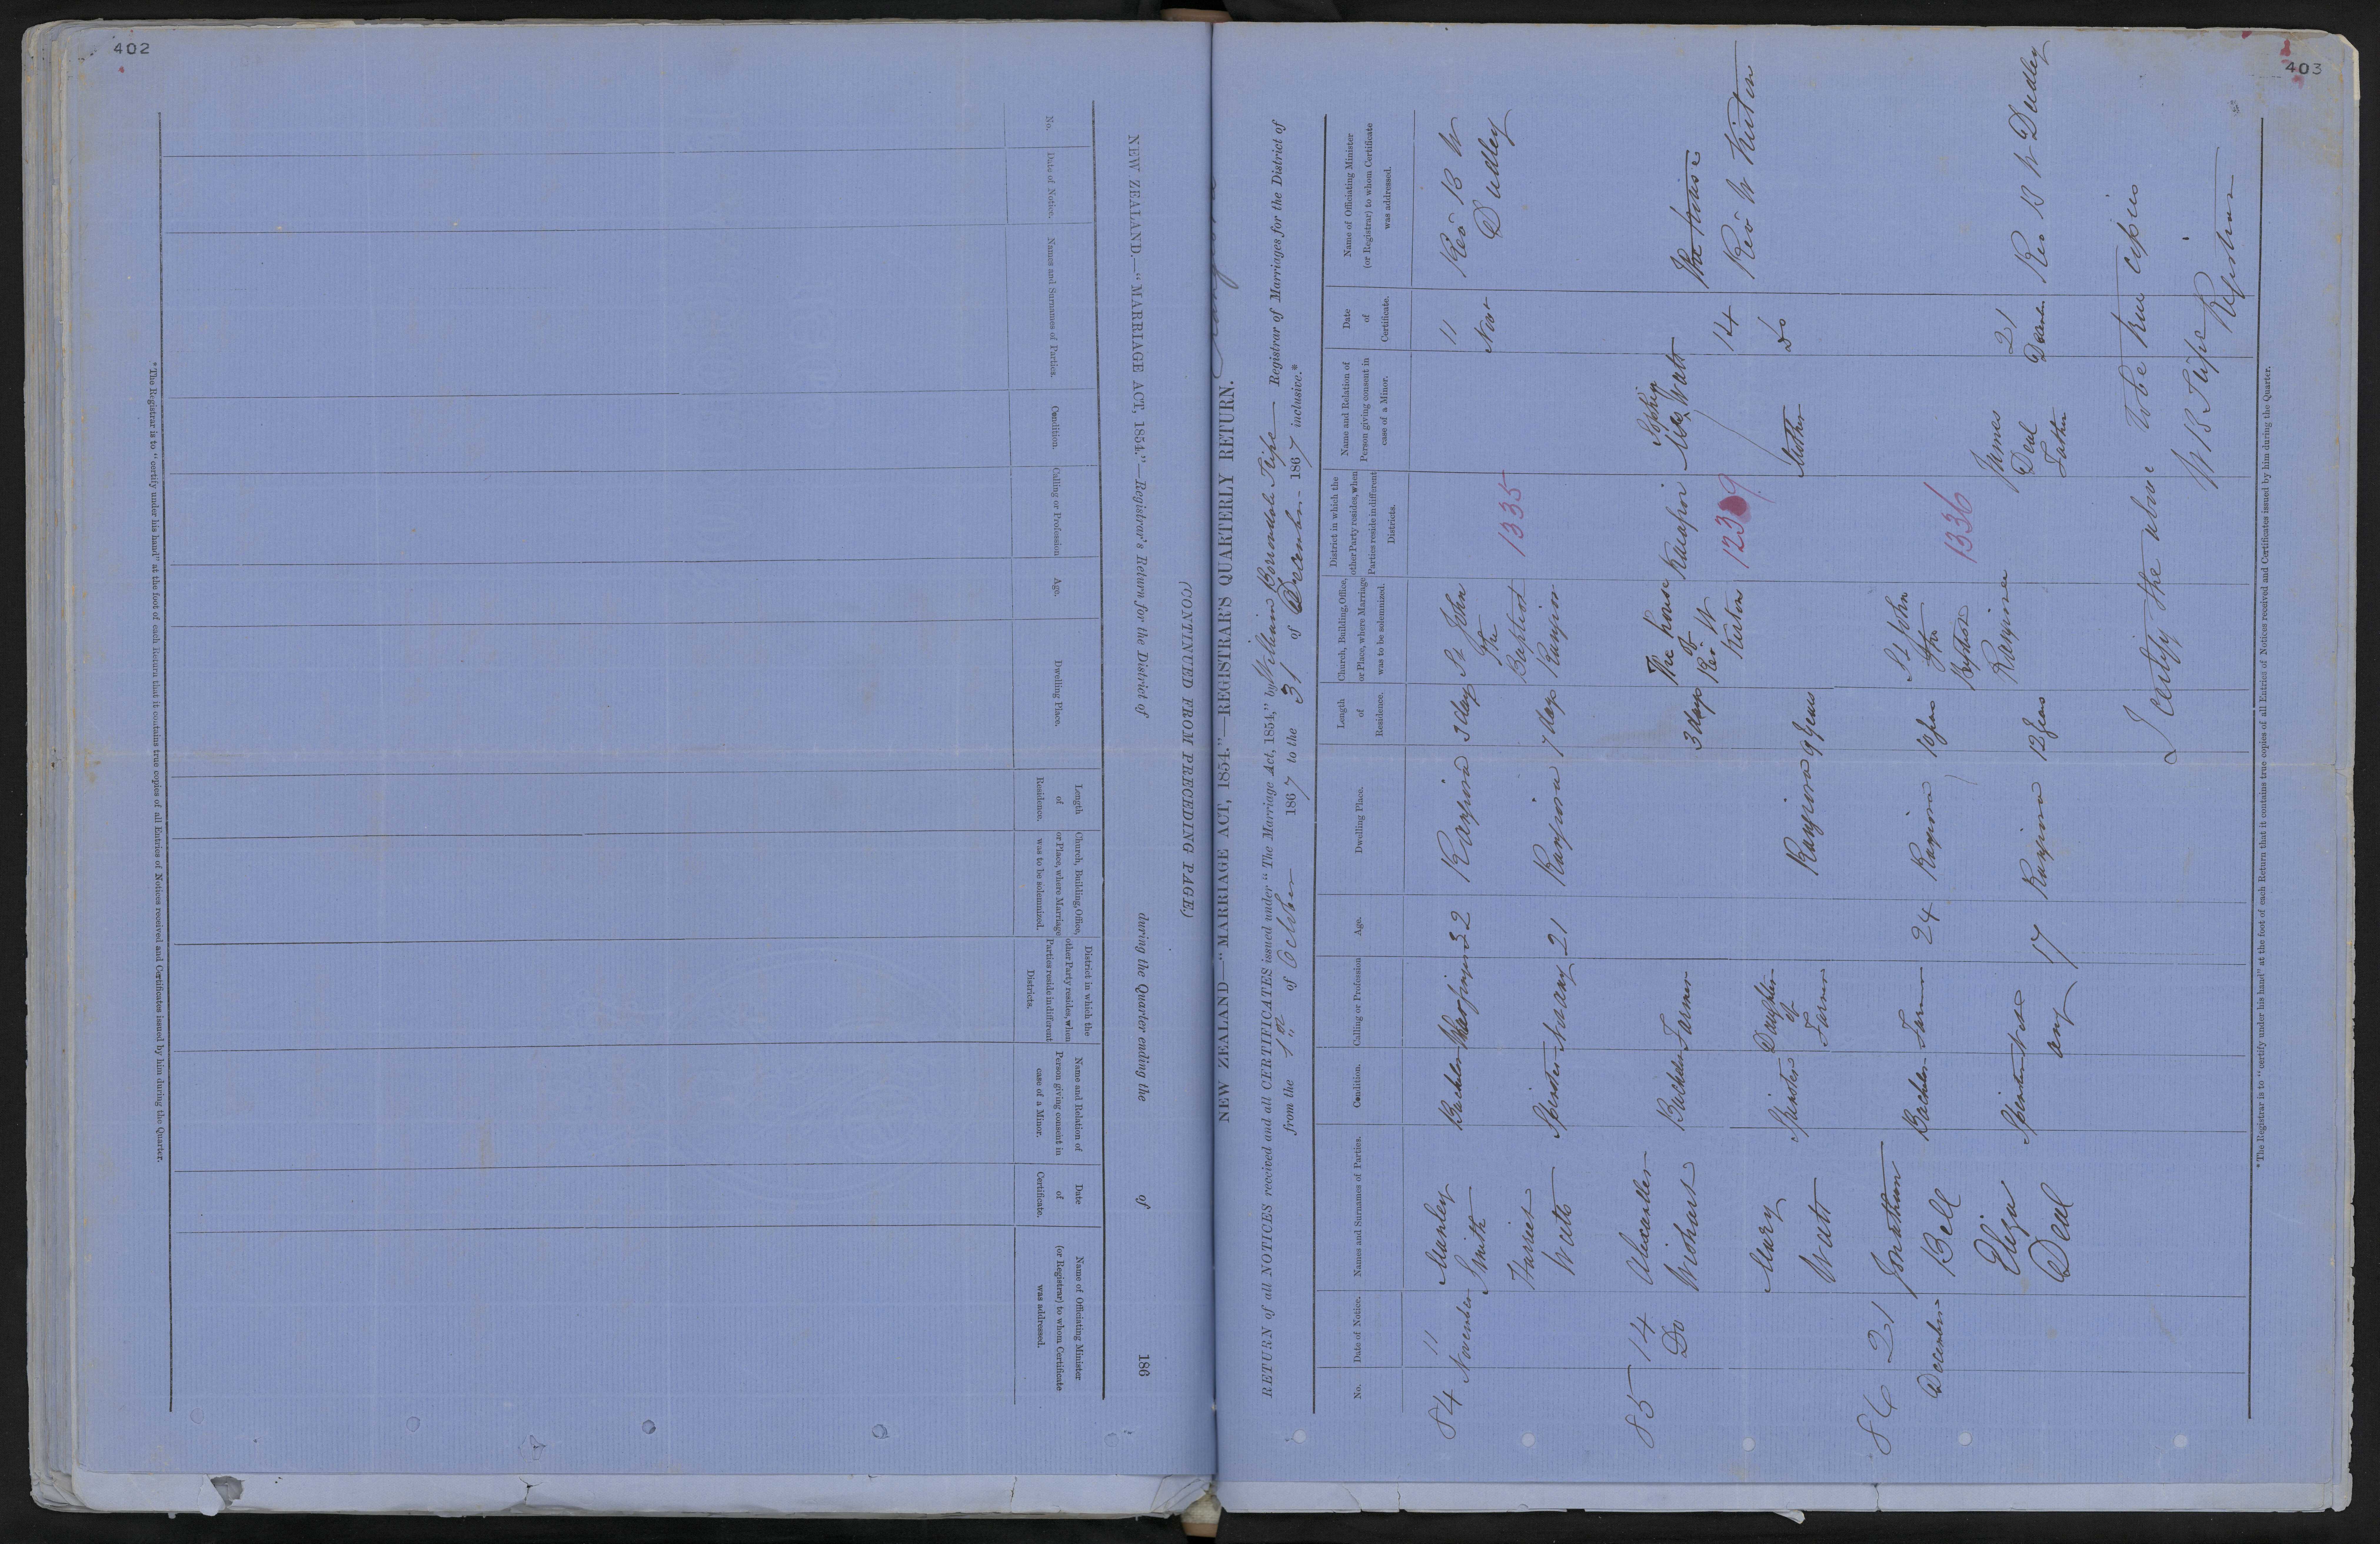 402
NEW ZEALAND.—"MARRIAGE ACT, 1854."—Registrar's Return for the District of during the Quarter ending the of 186
(CONTINUED FROM PRECEDING PAGE.)
No.
Date of Notice.
Names and Surnames of Parties.
Condition.
Calling or Profession
Age.
Dwelling Place.
Length
of
Residence.
Church, Building, Office,
or Place, where Marriage
was to be solemnized.
District in which the
other Party resides, when
Parties reside in different
Districts.
Name and Relation of
Person giving consent in
case of a Minor.
Date
of
Certificate.
Name of Officiating Minister
(or Registrar) to whom Certificate
was addressed.
*The Registrar is to "certify under his hand" at the foot of each Return that it contains true copies of all Entries of Notices received and Certificates issued by him during the Quarter.
403
NEW ZEALAND—"MARRIAGE ACT, 1854."—REGISTRAR'S QUARTERLY RETURN.
RETURN of all NOTICES received and all CERTIFICATES issued under "The Marriage Act, 1854," by William Registrar of Marriages for the District of
from the 1st of October 1867 to the 31 of December 1867 inclusive.*
No.
Date of Notice.
Names and Surnames of Parties.
Condition.
Calling or Profession
Age.
Dwelling Place.
Length
of
Residence.
Church, Building, Office,
or Place, where Marriage
was to be solemnized.
District in which the
other Party resides, when
Parties reside in different
Districts.
Name and Relation of
Person giving consent in
case of a Minor.
Date
of
Certificate.
Name of Officiating Minister
(or Registrar) to whom Certificate
was addressed.
84
11
November
Manley
Smith
Bachelor
32
Rangiora
3 days
St John
the
Baptist
Rangiora
1335
11
Novr
Rev B W
Dudley
Harriet
Watts
Spinster
21
Rangiora
7 days
85
14
Do
Alexander
Wishart
Bachelor
Farmer
3 days
The house
of
Rev W
Kirton
Kaiapoi
1239
Sophia
Watt
Mother
14
Do
Rev W Kirton
Mary
Watt
Spinster
Daughter
of
Farmer
Rangiora
9 years
86
21
December
Jonathan
Bell
Bachelor
Farmer
24
Rangiora
10 years
St John
the
Baptist
Rangiora
1336
James
Deal
Father
21
Decembr
Rev B W Dudley
Eliza
Deal
Spinster
17
Rangiora
12 years
I certify the above to be true copies
Registrar
*The Registrar is to "certify under his hand" at the foot of each Return that it contains true copies of all Entries of Notices received and Certificates issued by him during the Quarter.